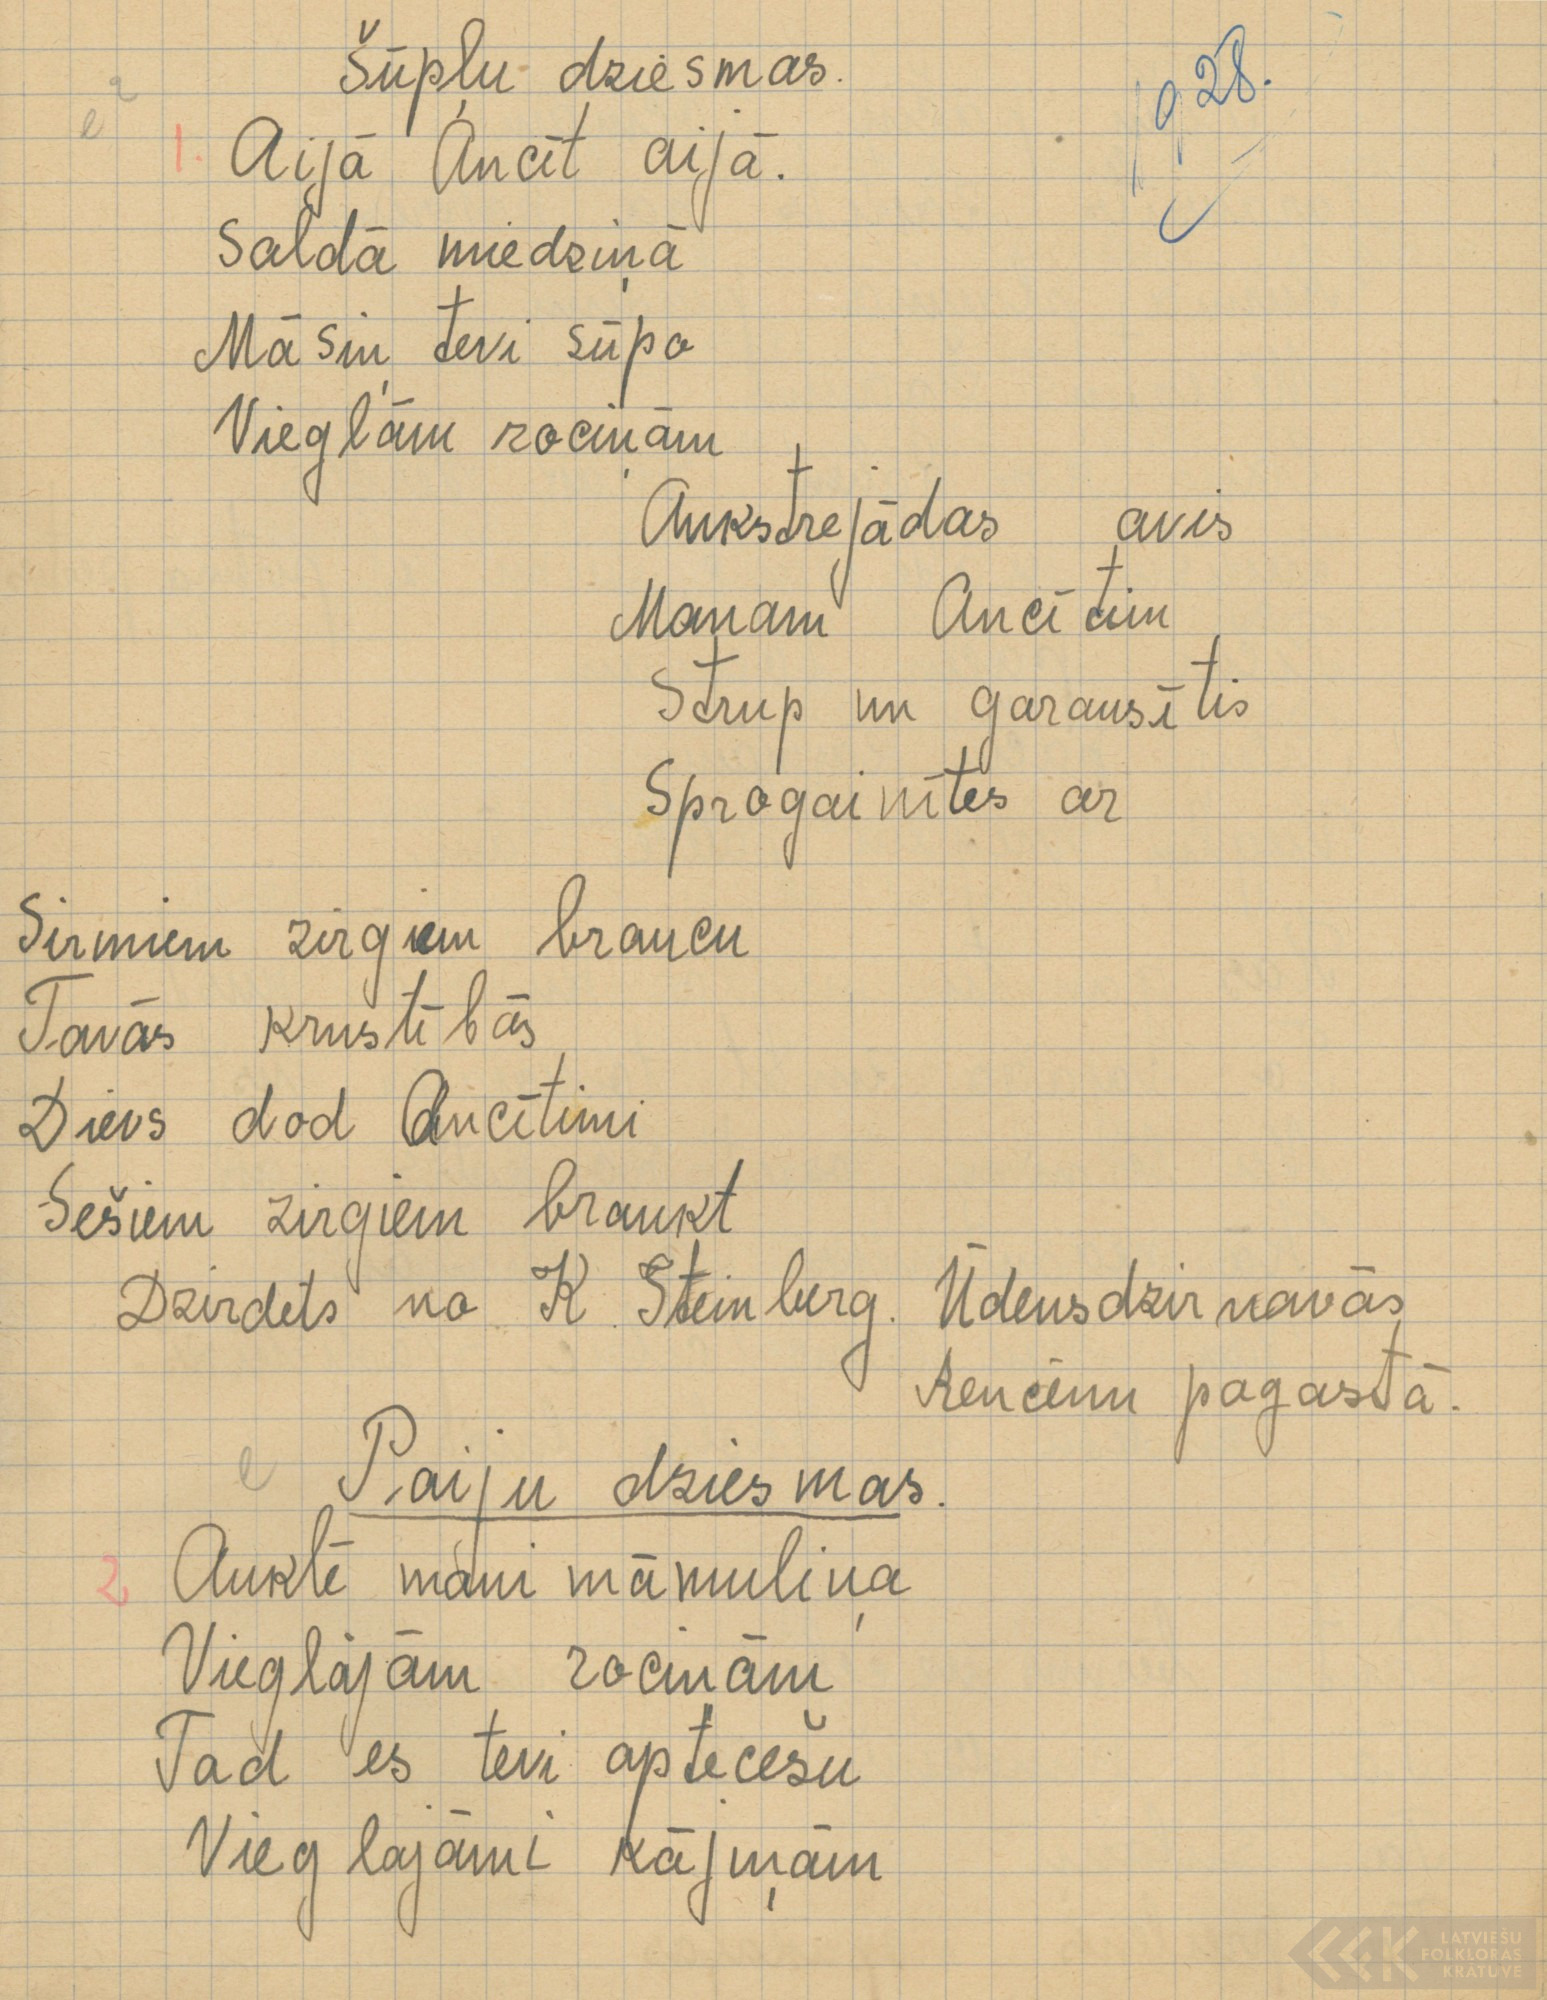 Šūpļu dziesmas.
1928.
1. Aijā Ancīt aijā.
Saldā miedziņā
Māsiņ tevi sūpo
Vieglām rociņām
Aukstrejādas avis
Manam Ancītim
Strup un garausītis
Sprogainītes ar
Sirmiem zirgiem braucu
Tavās krustībās
Dievs dod Ancītimi
Sešiem zirgiem braukt
Dzirdēts no K Šteinberg. Ūdensdzirnavās
Rencēnu pagastā.
e Paiju dziesmas.
2 Auklē mani māmuliņa
Vieglajām rociņām
Tad es tevi aptecēšu
Vieglajāmi kājiņām
LATVIEŠU
FOLKLORAS
KRĀTUVE